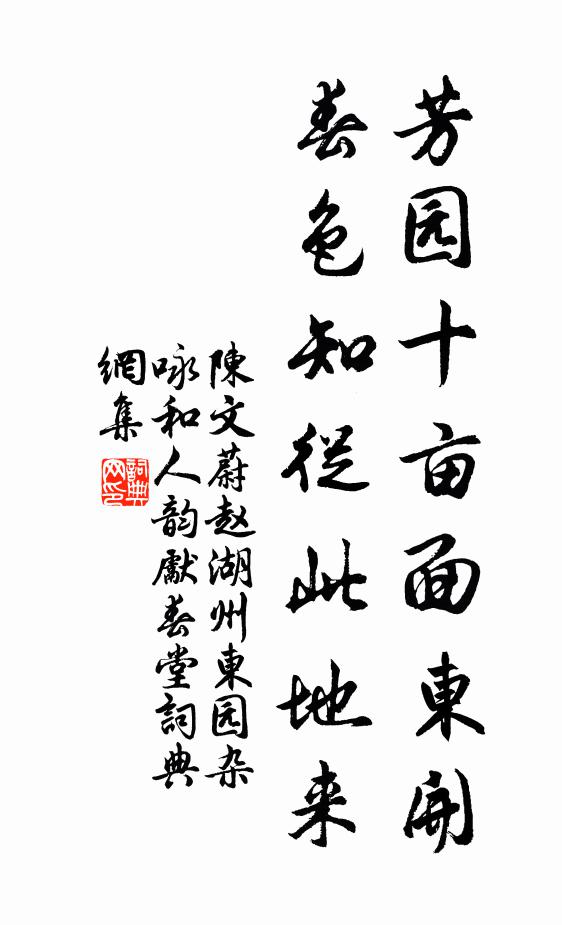 芳园十亩面東開
春色知從此地来
陳文蔚赵湖州東园杂
咏和人韵獻春堂詞典
網集
詞典
网印